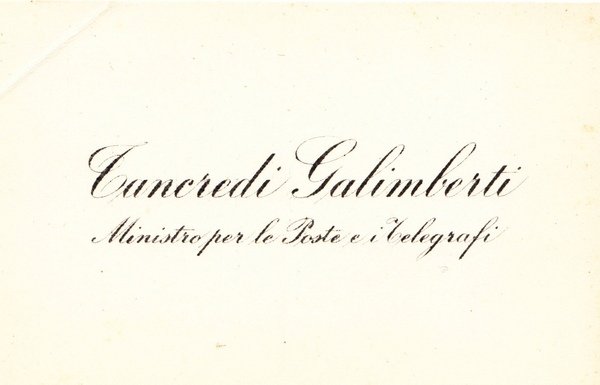 Tancredi Galimberti
Ministro per le Poste e i Telegrafi